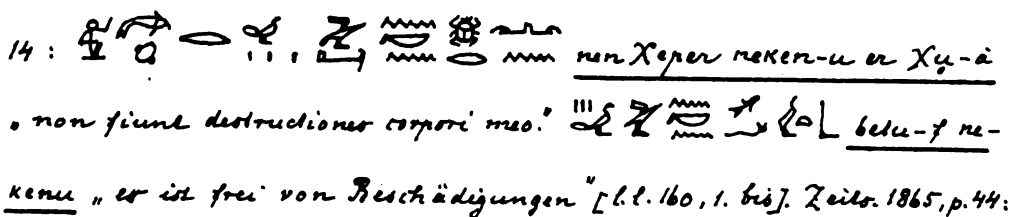 14: nen Xeper neken-u er Xụ-à
„non fiunt destructiones corpori meo.“ betu-f ne-
kenu „er ist frei von Beschädigungen“ [l.l. 160, 1. bis]. Zeits. 1865, p. 44: